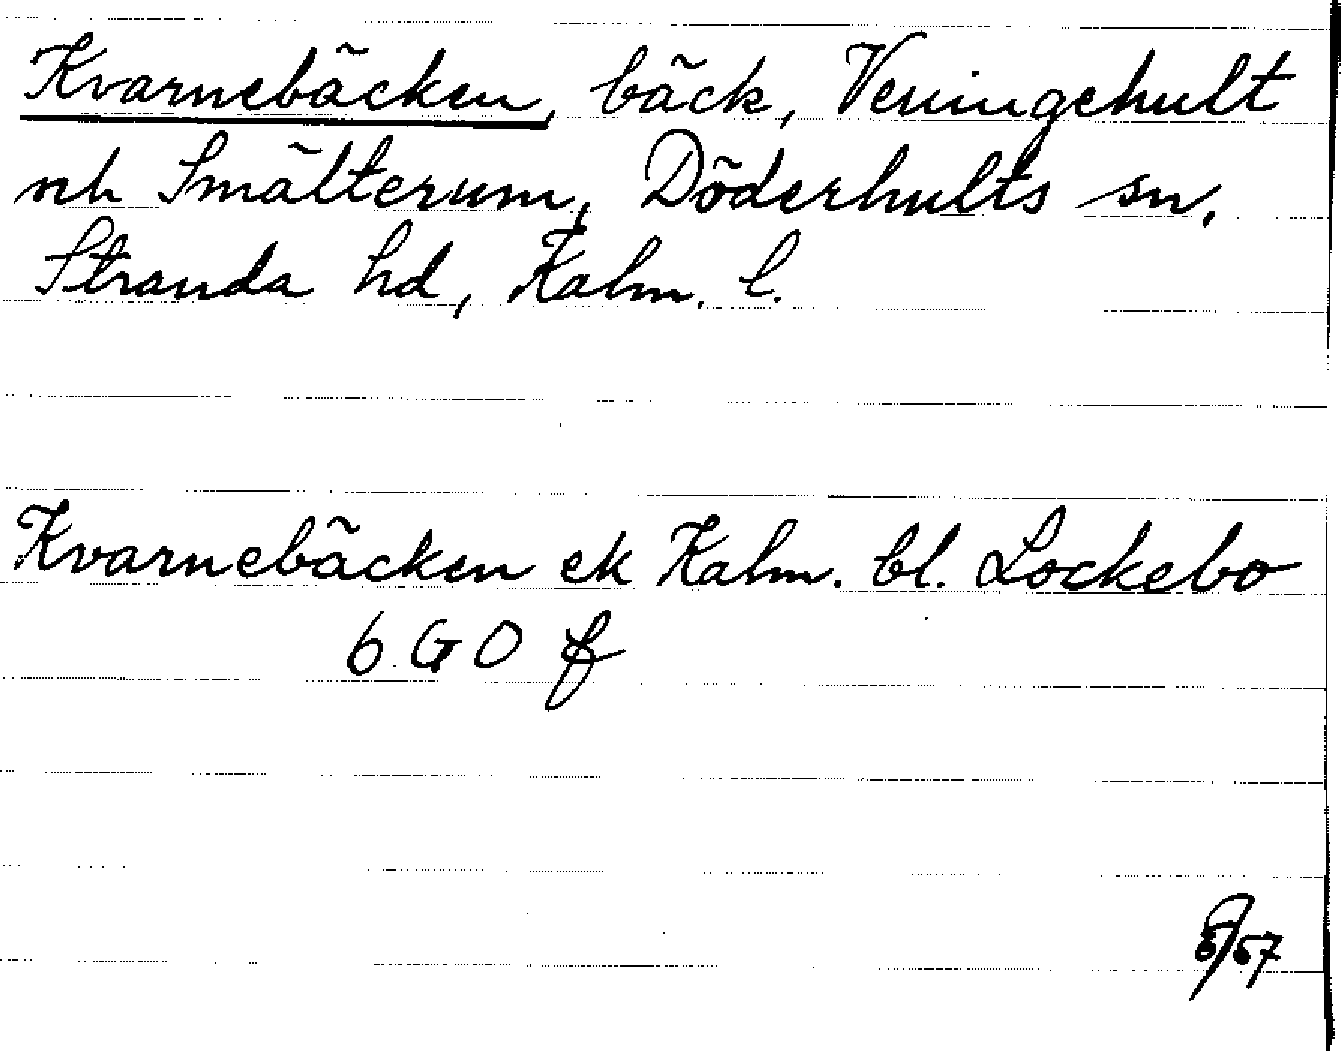 Kvarnebäcken, bäck, Veningehult
och Smälterum, Döderhults sn,
Stranda hd, Kalm. l.
Kvarnebäcken ek Kalm. bl. Lockebo
6 G O f
/67